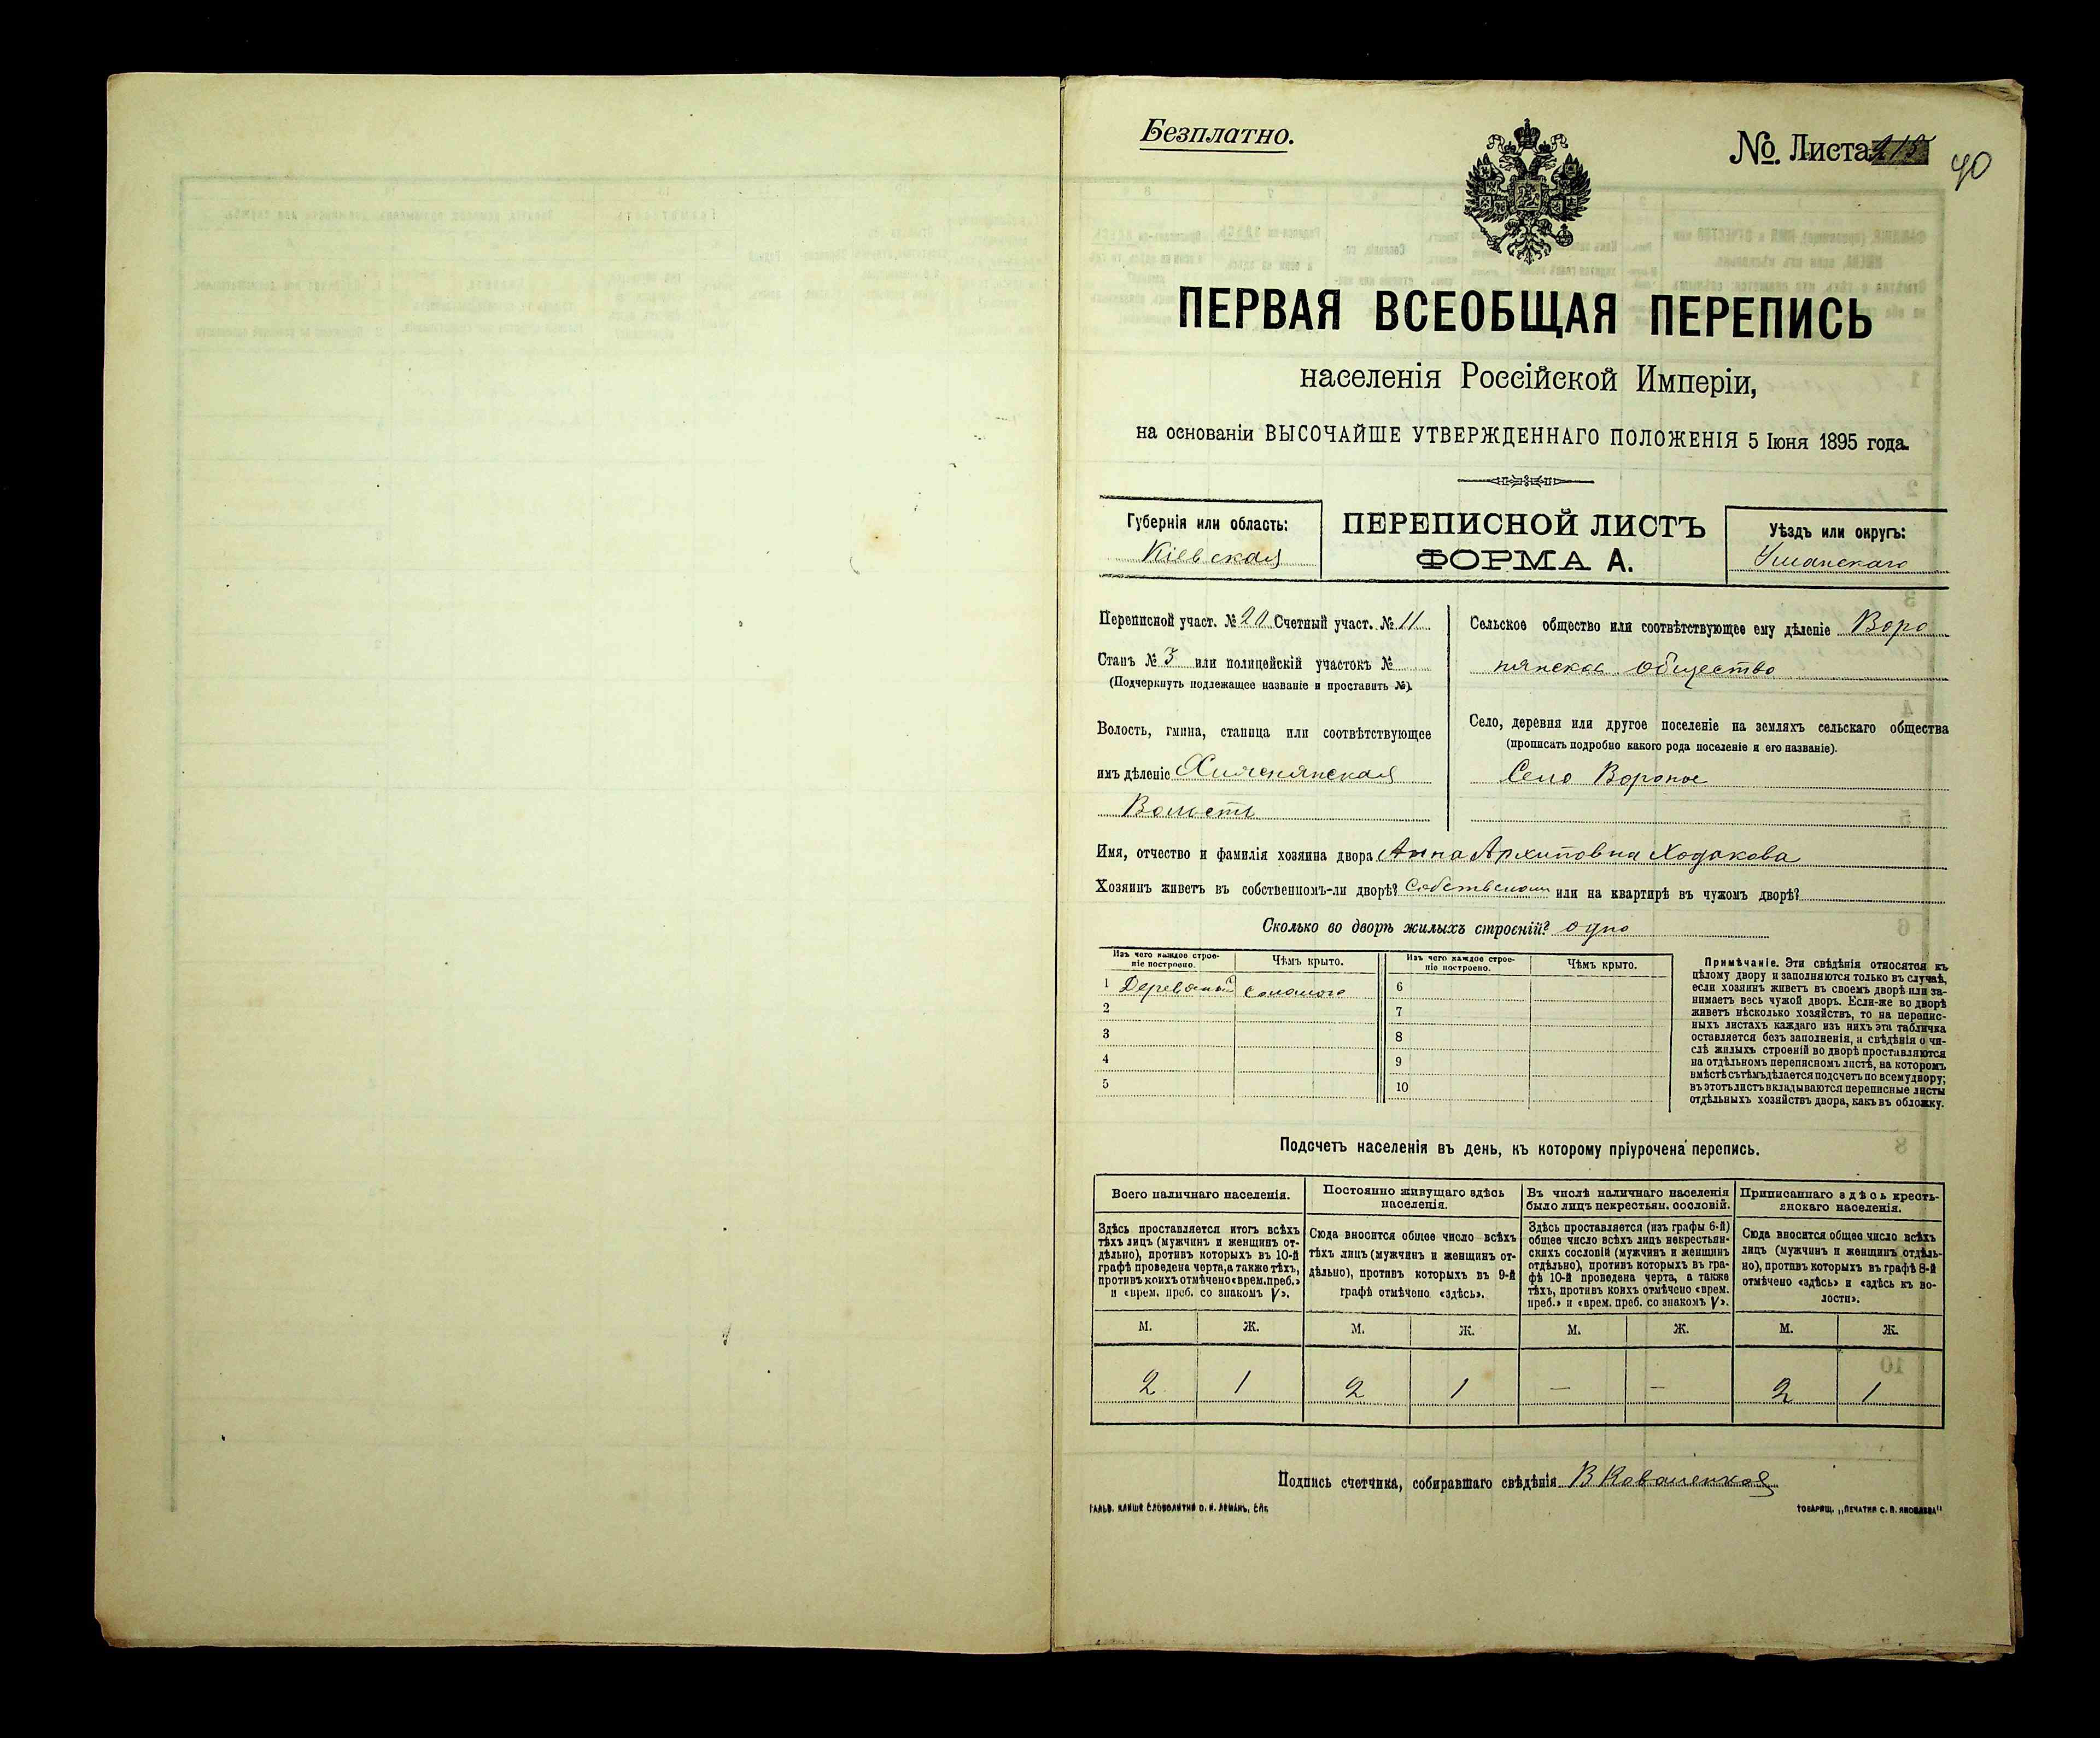 Безплатно.
№. Листа 215
40
ПЕРВАЯ ВСЕОБЩАЯ ПЕРЕПИСЬ
населенія Россійской Имперіи,
на основаніи ВЫСОЧАЙШЕ УТВЕРЖДЕННАГО ПОЛОЖЕНІЯ 5 Іюня 1895 года.
Губернія или область:
Кіевская
ПЕРЕПИСНОЙ ЛИСТЪ
ФОРМА А.
Уѣздъ или округъ:
Уманскаго
Переписной участ. № 20 Счетный участ. № 11
Станъ № 3 или полицейскій участокъ №
(Подчеркнуть подлежащее названіе и проставить №).
Волость, гмина, станица или соотвѣтствующее
имъ дѣленіе
Волость
Сельское общество или соотвѣтствующее ему дѣленіе Воро
нянское общество
Село, деревня или другое поселеніе на земляхъ сельскаго общества
(прописать подробно какого рода поселеніе и его названіе).
Село Вороное
Имя, отчество и фамилія хозяина двора Анна Архиповна Ходакова
Хозяинъ живетъ въ собственномъ-ли дворѣ? Собственом или на квартирѣ въ чужомъ дворѣ?
Сколько во дворѣ жилыхъ строеній? одно
Изъ чего каждое строе-
ніе построено.
Чѣмъ крыто.
Изъ чего каждое строе-
ніе построено.
Чѣмъ крыто.
1 Деревяный соломою
2
3
4
5
6
7
8
9
10
Примѣчаніе. Эти свѣдѣнія относятся къ
цѣлому двору и заполняются только въ случаѣ,
если хозяинъ живетъ въ своемъ дворѣ или за-
нимаетъ весь чужой дворъ. Если-же во дворѣ
живетъ нѣсколько хозяйствъ, то на перепис-
ныхъ листахъ каждаго изъ нихъ эта табличка
оставляется безъ заполненія, а свѣдѣнія о чи-
слѣ жилыхъ строеній во дворѣ проставляются
на отдѣльномъ переписномъ листѣ, на которомъ
вмѣстѣ съ тѣмъ дѣлается подсчетъ по всему двору;
въ этотъ листъ вкладываются переписные листы
отдѣльныхъ хозяйствъ двора, какъ въ обложку.
Подсчетъ населенія въ день, къ которому пріурочена перепись.
Всего наличнаго населенія.
Здѣсь проставляется итогъ всѣхъ
тѣхъ лицъ (мужчинъ и женщинъ от-
дѣльно), противъ которыхъ въ 10-й
графѣ проведена черта, а также тѣхъ,
противъ коихъ отмѣчено «врем. преб.»
и «врем. преб. со знакомъ V».
Постоянно живущаго здѣсь
населенія.
Сюда вносится общее число всѣхъ
тѣхъ лицъ (мужчинъ и женщинъ от-
дѣльно), противъ которыхъ въ 9-й
графѣ отмѣчено «здѣсь».
Въ числѣ наличнаго населенія
было лицъ некрестьян. сословій.
Здѣсь проставляется (изъ графы 6-й)
общее число всѣхъ лицъ некрестьян-
скихъ сословій (мужчинъ и женщинъ
отдѣльно), противъ которыхъ въ гра-
фѣ 10-й проведена черта, а также
тѣхъ, противъ коихъ отмѣчено «врем.
преб.» и «врем. преб. со знакомъ V».
Приписаннаго здѣсь кресть-
янскаго населенія.
Сюда вносится общее число всѣхъ
лицъ (мужчинъ и женщинъ отдѣль-
но), противъ которыхъ въ графѣ 8-й
отмѣчено «здѣсь» и «здѣсь къ во-
лости».
М. Ж. М. Ж. М. Ж. М. Ж.
2 1 2 1 — — 2 1
Подпись счетчика, собиравшаго свѣдѣнія
ГАЛЬВ. КЛИШЕ СЛОВОЛИТНИ О. И. ЛЕМАНЪ, СПБ.
ТОВАРИЩ. „ПЕЧАТНЯ С. П. ЯКОВЛЕВА"